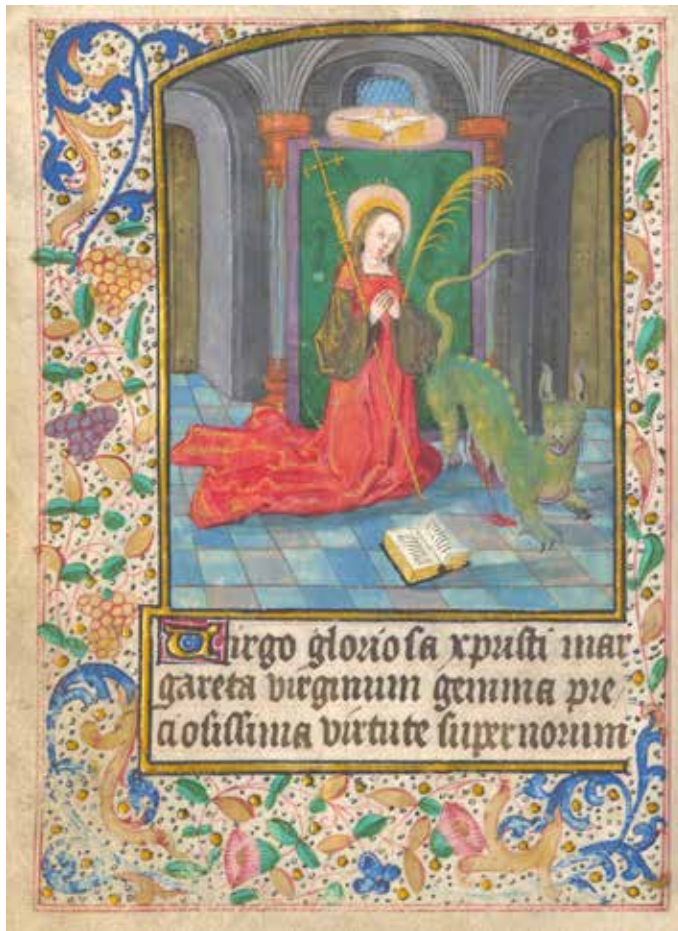 Virgo gloriosa xpristi mar
gareta virginum gemma pre
ciosissima virtute supernorum